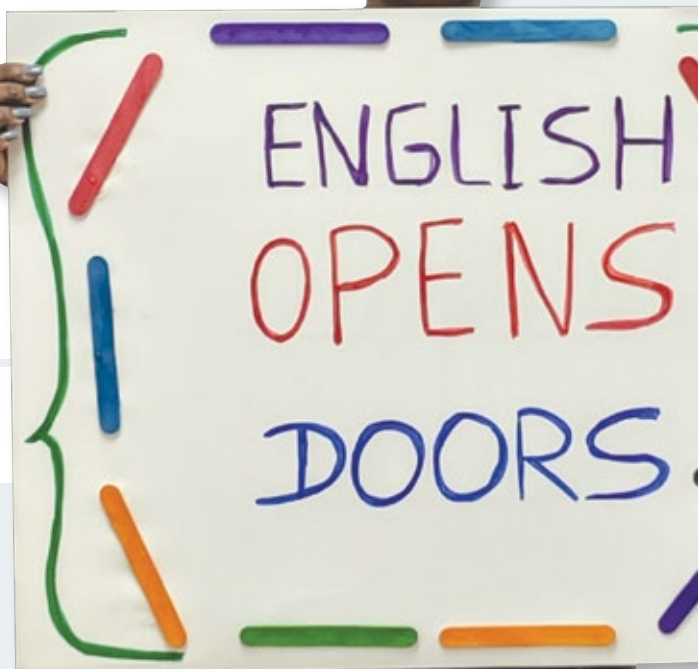 ENGLISH
OPENS
DOORS